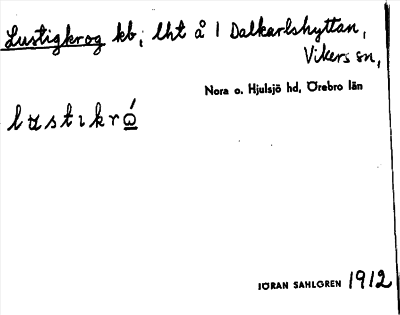 Lustigkrog kb; lht å 1 Dalkarlshyttan,
Vikers sn,
Nora o. Hjulsjö hd, Örebro län
JÖRAN SAHLGREN 1912